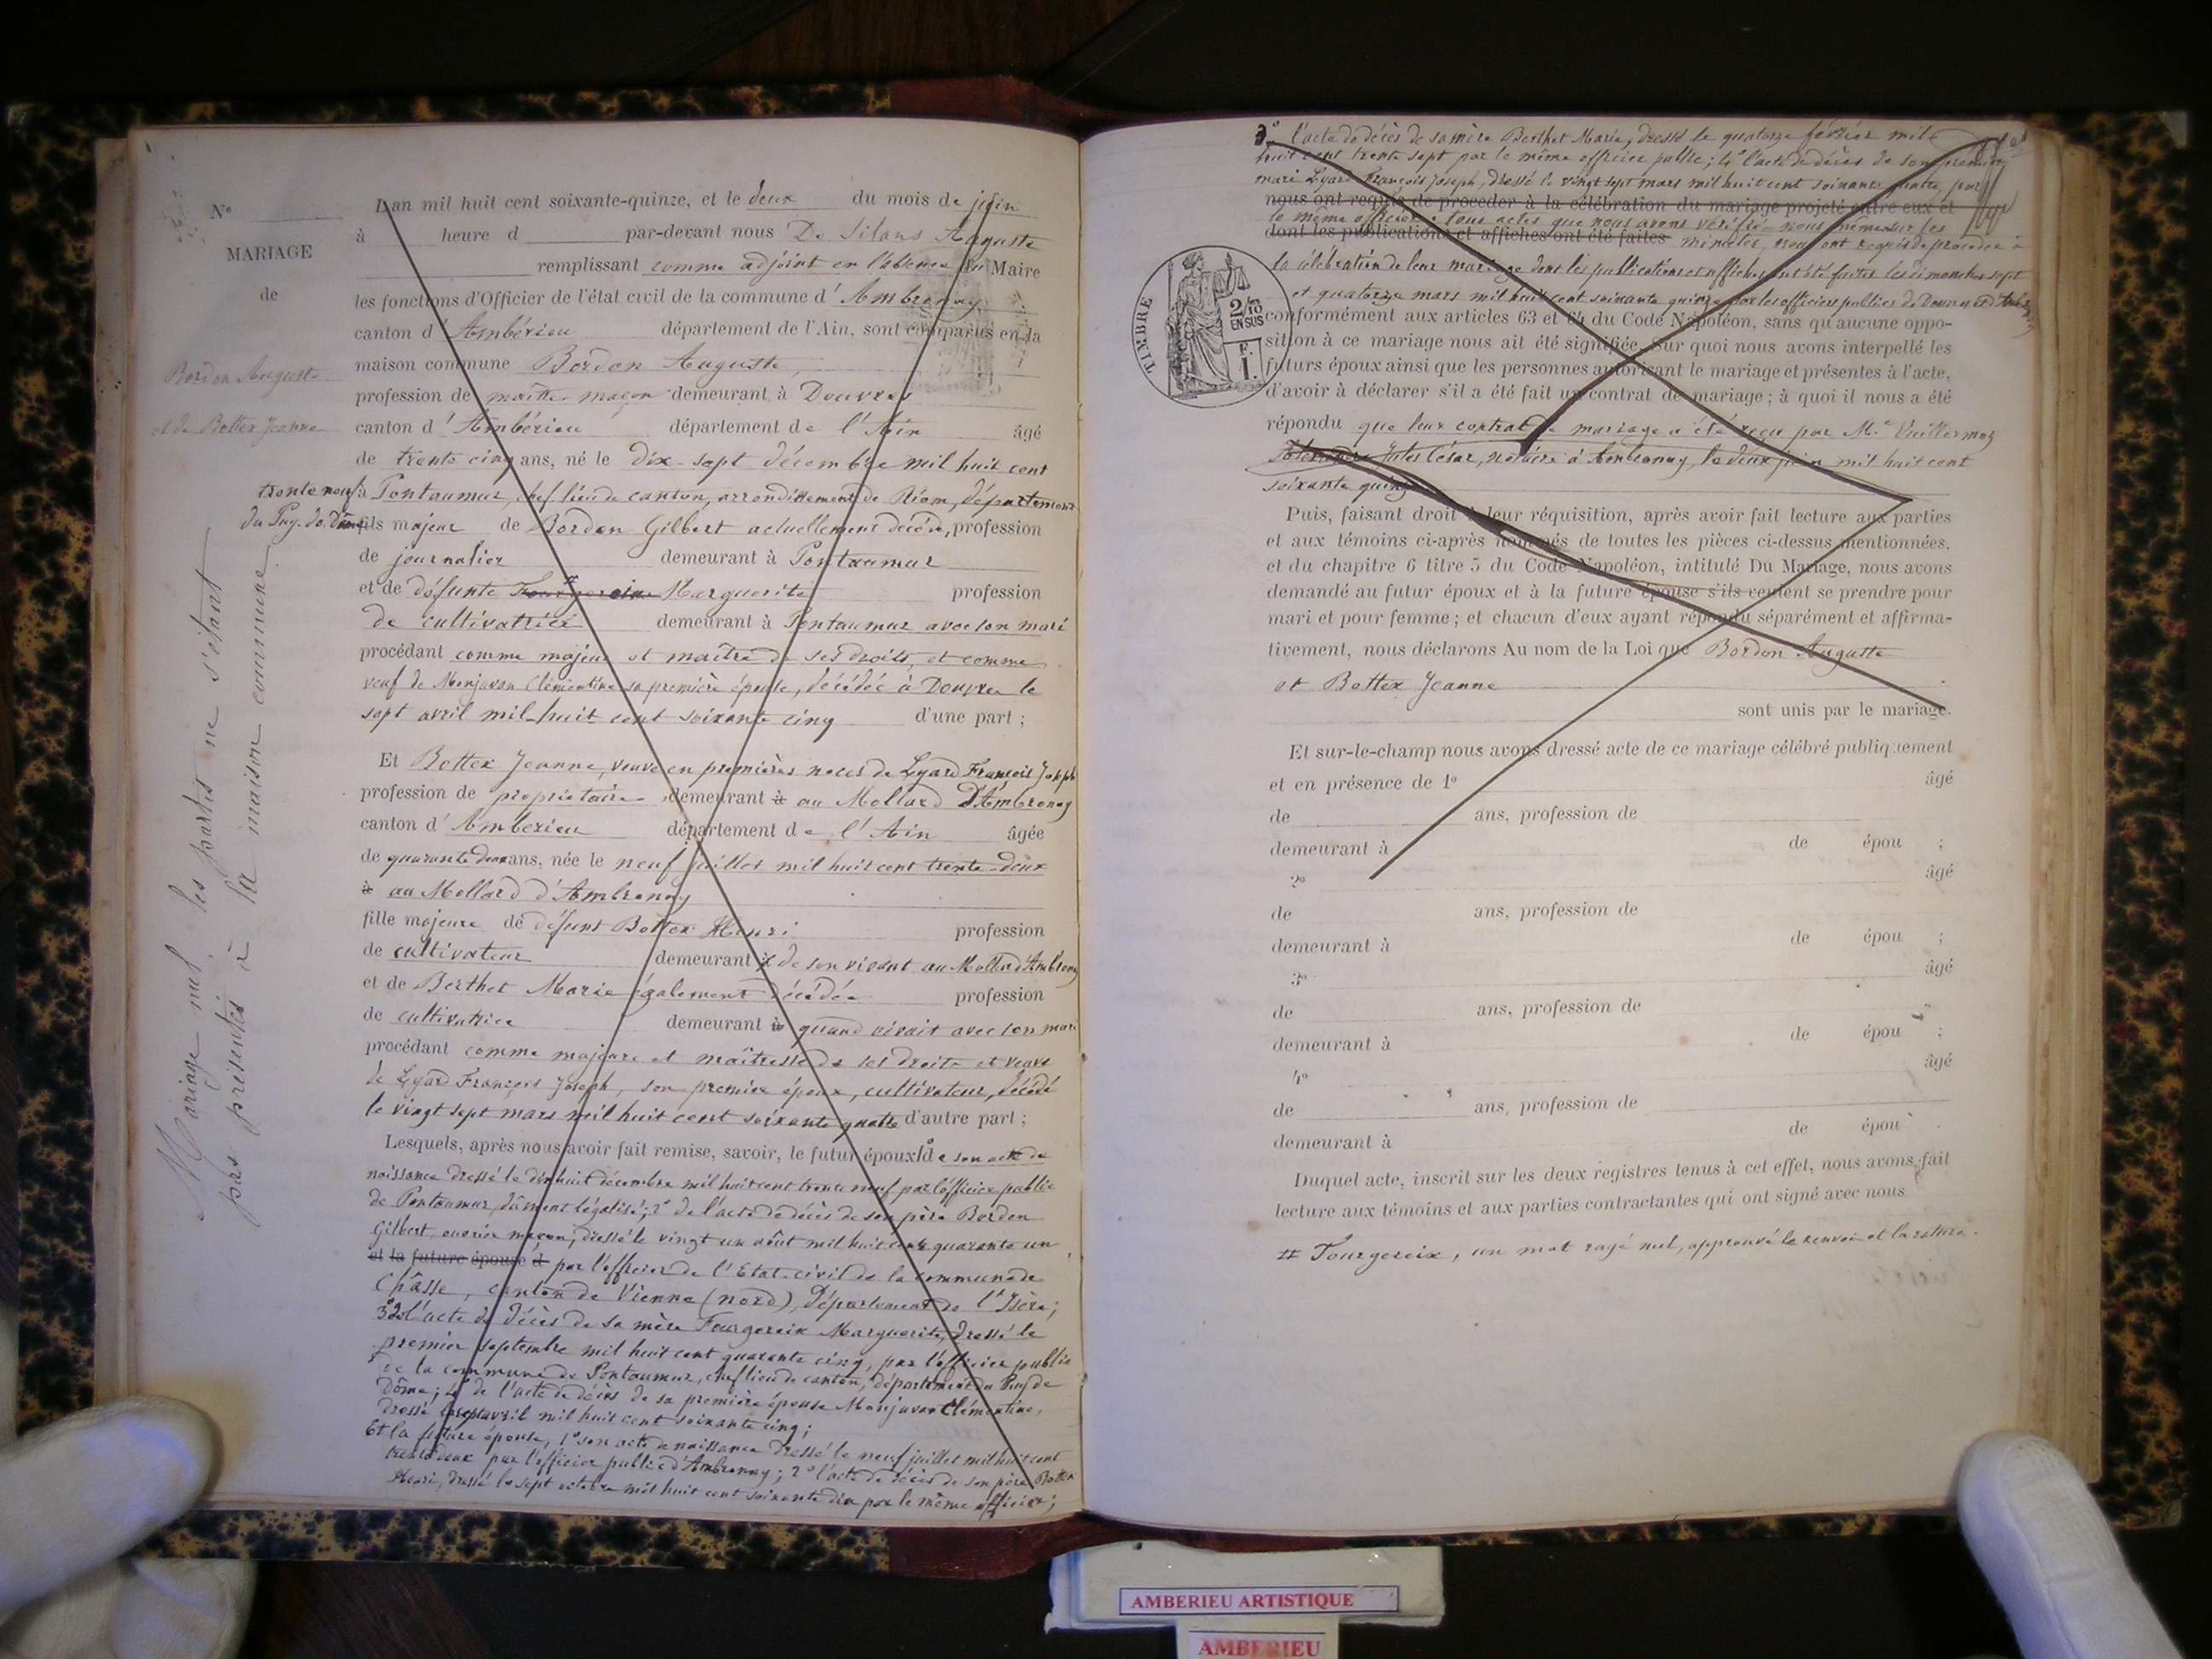 N°
MARIAGE
de
Bordon Auguste
et de Bottex Jeanne
Mariage nul, les parties ne s'étant
pas présentées à la maison commune.
L'an mil huit cent soixante-quinze, et le deux du mois de juin
à heure d par-devant nous De Silans Auguste
remplissant comme adjoint en l'absence du Maire
les fonctions d'Officier de l'état civil de la commune d' Ambronay
canton d' Ambérieu département de l'Ain, sont comparus en la
maison commune Bordon Auguste,
profession de maître maçon demeurant à Douvres
canton d' Ambérieu département de l'Ain âgé
de trente cinq ans, né le dix-sept décembre mil huit cent
trente neuf à Pontaumur, chef lieu de canton, arrondissement de Riom, département
du Puy-de-Dôme fils majeur de Bordon Gilbert actuellement décédé, profession
de journalier demeurant à Pontaumur
et de défunte Fourgereix Marguerite profession
de cultivatrice demeurant à Pontaumur avec son mari
procédant comme majeur et maître de ses droits, et comme
veuf de Monjuvan Clémentine sa première épouse, décédée à Douvres le
sept avril mil-huit cent soixante cinq d'une part ;
Et Bottex Jeanne, veuve en premières noces de Lyard François Joseph
profession de propriétaire demeurant à au Mollard d'Ambronay
canton d' Ambérieu département de l'Ain âgée
de quarante deux ans, née le neuf juillet mil huit cent trente-deux
à au Mollard d'Ambronay
fille majeure de défunt Bottex Henri profession
de cultivateur demeurant à de son vivant au Mollard d'Ambronay
et de Berthet Marie également décédée profession
de cultivatrice demeurant à quand vivait avec son mari
procédant comme majeure et maîtresse de ses droits et veuve
de Lyard François Joseph, son premier époux, cultivateur, décédé
le vingt sept mars mil huit cent soixante quatre d'autre part ;
Lesquels, après nous avoir fait remise, savoir, le futur époux 1° de son acte de
naissance dressé le dix huit décembre mil huit cent trente neuf par l'officier public
de Pontaumur, dûment légalisé ; 2° de l'acte de décès de son père Bordon
Gilbert, ouvrier maçon, dressé le vingt un août mil huit cent quarante un
et la future épouse d par l'officier de l'Etat-civil de la commune de
Châsse, canton de Vienne (nord), département de l'Isère ;
3° de l'acte de décès de sa mère Fourgereix Marguerite, dressé le
premier septembre mil huit cent quarante cinq, par l'officier public
de la commune de Pontaumur, chef lieu de canton, département du Puy de
Dôme ; 4° de l'acte de décès de sa première épouse Monjuvan Clémentine,
dressé le sept avril mil huit cent soixante cinq ;
Et la future épouse, 1° son acte de naissance dressé le neuf juillet mil huit cent
trente deux par l'officier public d'Ambronay ; 2° l'acte de décès de son père Bottex
Henri, dressé le sept octobre mil huit cent soixante dix par le même officier ;
3° l'acte de décès de sa mère Berthet Marie, dressé le quatorze février mil
huit cent trente sept par le même officier public ; 4° l'acte de décès de son premier
mari Lyard François Joseph, dressé le vingt sept mars mil huit cent soixante quatre, par
nous ont requis de procéder à la célébration du mariage projeté entre eux et
le même officier ; tous actes que nous avons vérifié nous même sur les
dont les publications et affiches ont été faites minutes, nous ont requis de procéder à
la célébration de leur mariage dont les publications et affiches ont été faites les dimanches sept
et quatorze mars mil huit cent soixante quinze par les officiers publics de Douvres et d'Ambronay
TIMBRE
2/10 EN SUS
F. 1.
conformément aux articles 63 et 64 du Code Napoléon, sans qu'aucune oppo-
sition à ce mariage nous ait été signifiée. Sur quoi nous avons interpellé les
futurs époux ainsi que les personnes autorisant le mariage et présentes à l'acte,
d'avoir à déclarer s'il a été fait un contrat de mariage ; à quoi il nous a été
répondu que leur contrat de mariage a été reçu par M.e Vuillermoz
Alexandre Jules César, notaire à Ambronay, le deux juin mil huit cent
soixante quinze
Puis, faisant droit à leur réquisition, après avoir fait lecture aux parties
et aux témoins ci-après nommés de toutes les pièces ci-dessus mentionnées,
et du chapitre 6 titre 5 du Code Napoléon, intitulé Du Mariage, nous avons
demandé au futur époux et à la future épouse s'ils veulent se prendre pour
mari et pour femme ; et chacun d'eux ayant répondu séparément et affirma-
tivement, nous déclarons Au nom de la Loi que Bordon Auguste
et Bottex Jeanne
sont unis par le mariage.
Et sur-le-champ nous avons dressé acte de ce mariage célébré publiquement
et en présence de 1° âgé
de ans, profession de
demeurant à de épou ;
2° âgé
de ans, profession de
demeurant à de épou ;
3° âgé
de ans, profession de
demeurant à de épou ;
4° âgé
de ans, profession de
demeurant à de épou .
Duquel acte, inscrit sur les deux registres tenus à cet effet, nous avons fait
lecture aux témoins et aux parties contractantes qui ont signé avec nous
# Fourgereix, un mot rayé nul, approuvé le renvoi et la rature.
AMBERIEU ARTISTIQUE
AMBERIEU